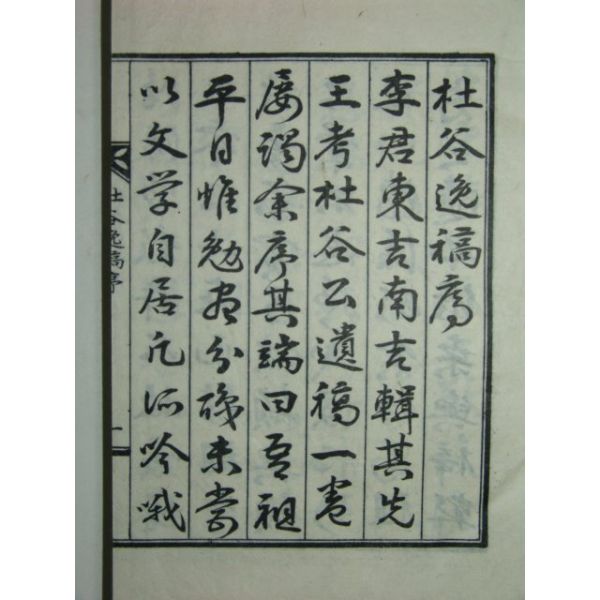 杜谷逸稿序
李君東吉南吉輯其先
王考杜谷公遺稿一卷
屡謁余序其端曰吾祖
平日惟勉尽分殘未嘗
以文学自居凡所吟哦
杜谷逸稿序
一